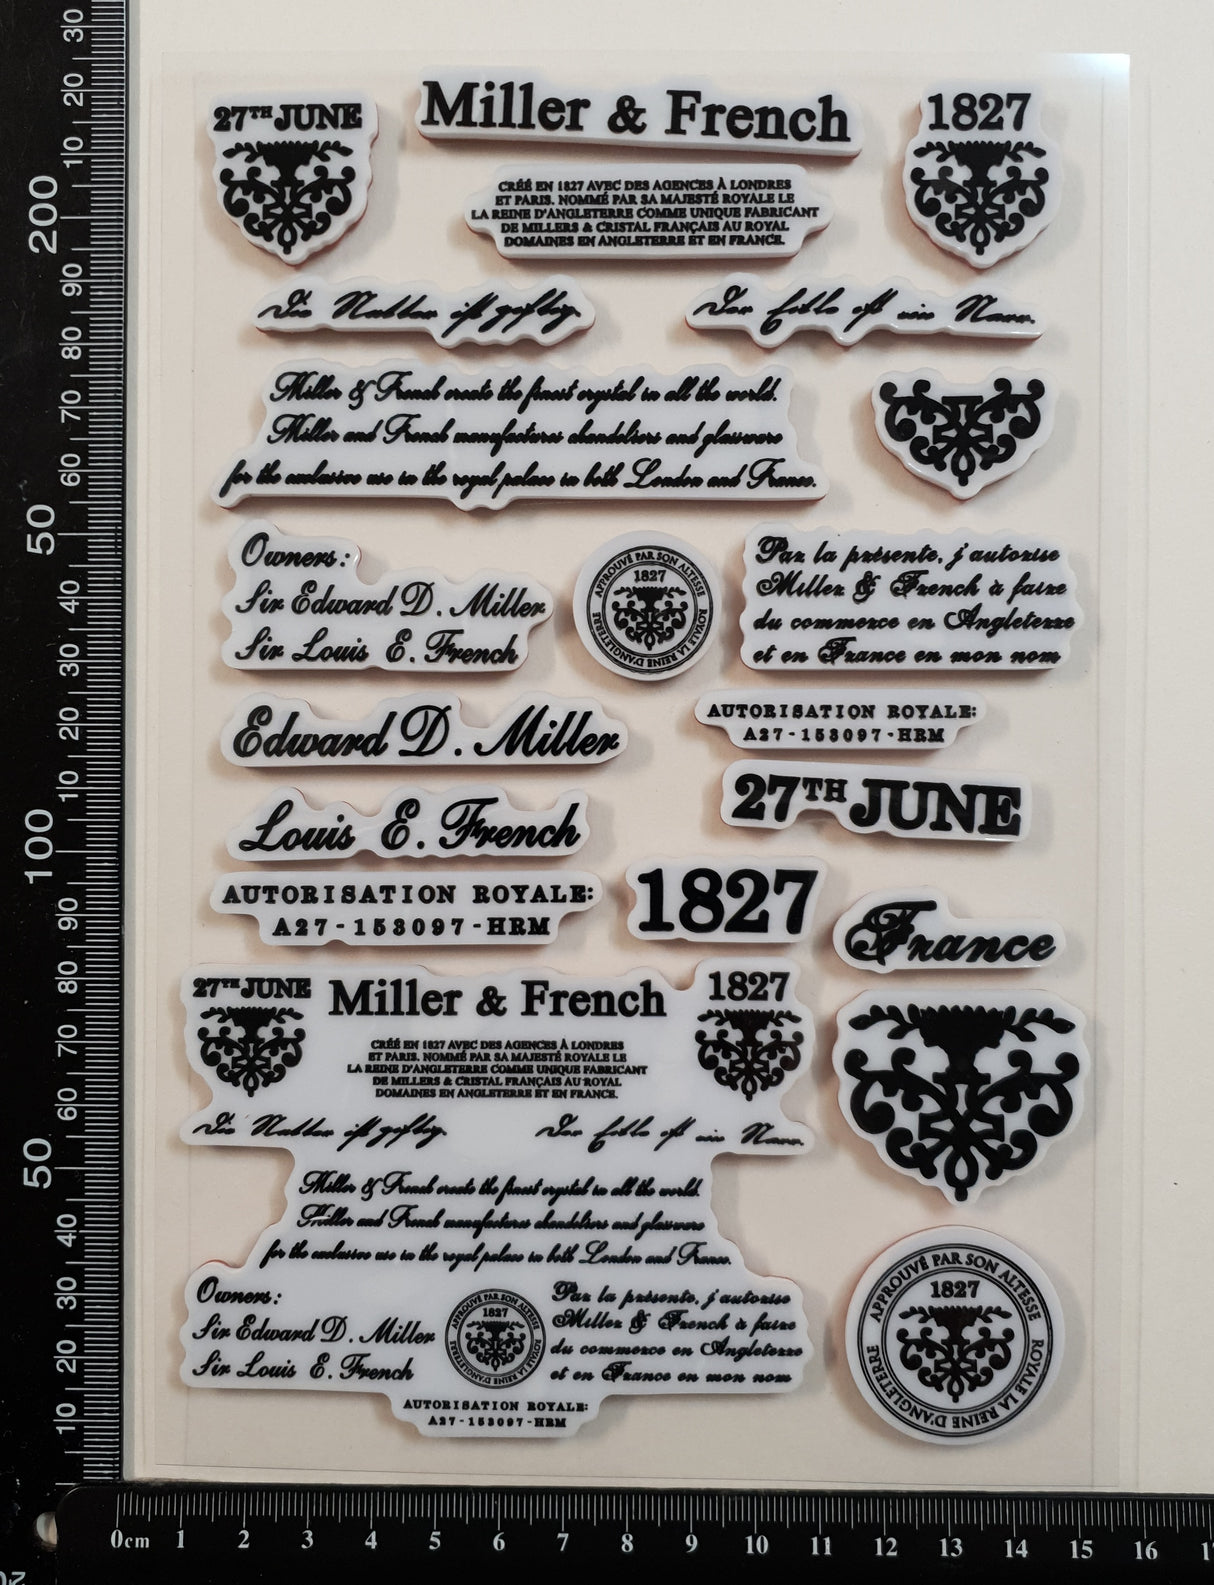 27TH JUNE
Miller & French
1827
CRÉÉ EN 1827 AVEC DES AGENCES À LONDRES
ET PARIS. NOMMÉ PAR SA MAJESTÉ ROYALE LE
LA REINE D'ANGLETERRE COMME UNIQUE FABRICANT
DE MILLERS & CRISTAL FRANÇAIS AU ROYAL
DOMAINES EN ANGLETERRE ET EN FRANCE.
Die Natter ist geftig.
Der ist ein Narr.
Miller & French create the finest crystal in all the world.
Miller and French manufactures chandeliers and glassware
for the exclusive use in the royal palace in both London and France.
Owners:
Sir Edward D. Miller
Sir Louis E. French
APPROUVÉ PAR SON ALTESSE ROYALE LA REINE D'ANGLETERRE
1827
Par la présente, j'autorise
Miller & French à faire
du commerce en Angleterre
et en France en mon nom
Edward D. Miller
AUTORISATION ROYALE:
A27-153097-HRM
27TH JUNE
Louis E. French
AUTORISATION ROYALE:
A27-153097-HRM
1827
France
27TH JUNE
Miller & French
1827
CRÉÉ EN 1827 AVEC DES AGENCES À LONDRES
ET PARIS. NOMMÉ PAR SA MAJESTÉ ROYALE LE
LA REINE D'ANGLETERRE COMME UNIQUE FABRICANT
DE MILLERS & CRISTAL FRANÇAIS AU ROYAL
DOMAINES EN ANGLETERRE ET EN FRANCE.
Die Natter ist geftig.
Der ist ein Narr.
Miller & French create the finest crystal in all the world.
Miller and French manufactures chandeliers and glassware
for the exclusive use in the royal palace in both London and France.
Owners:
Sir Edward D. Miller
Sir Louis E. French
APPROUVÉ PAR SON ALTESSE ROYALE LA REINE D'ANGLETERRE
1827
Par la présente, j'autorise
Miller & French à faire
du commerce en Angleterre
et en France en mon nom
AUTORISATION ROYALE:
A27-153097-HRM
APPROUVÉ PAR SON ALTESSE ROYALE LA REINE D'ANGLETERRE
1827
30
20
10
200
90
80
70
60
50
40
30
20
10
100
90
80
70
60
50
40
30
20
10
0cm 1 2 3 4 5 6 7 8 9 10 11 12 13 14 15 16